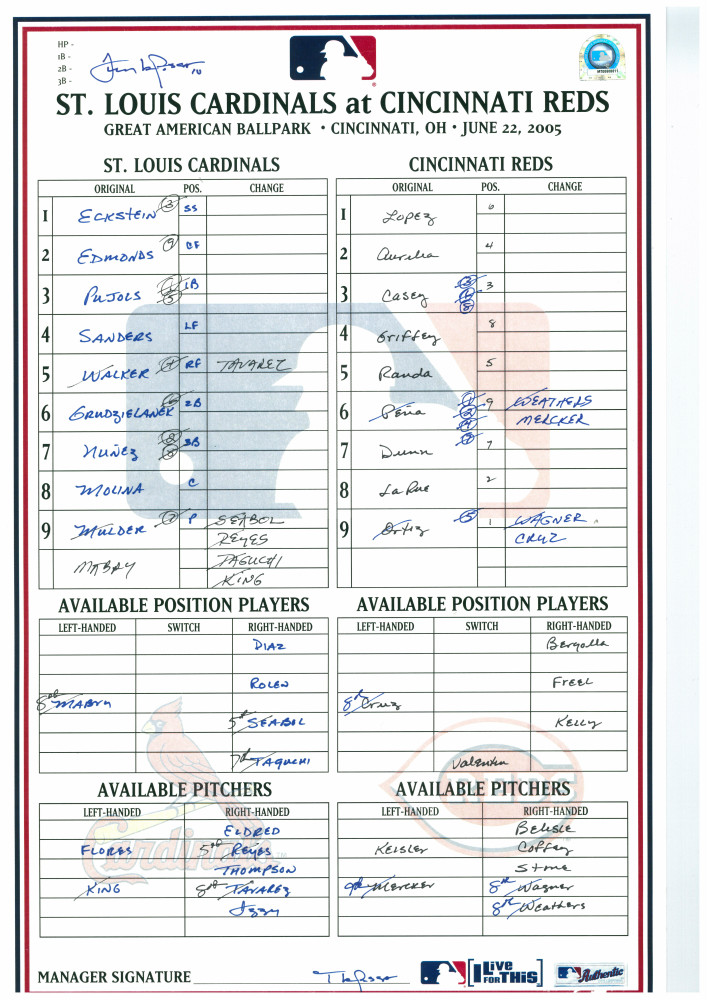 HP -
1B -
2B -
3B -
ST. LOUIS CARDINALS at CINCINNATI REDS
GREAT AMERICAN BALLPARK • CINCINNATI, OH • JUNE 22, 2005
ST. LOUIS CARDINALS
ORIGINAL POS. CHANGE
1 ECKSTEIN 3 SS
2 EDMONDS 9 CF
3 PUJOLS 1B
4 SANDERS LF
5 WALKER RF TAVAREZ
6 GRUDZIELANEK 2B
7 NUÑEZ 3B
8 MOLINA C
9 MULDER P SEABOL
REYES
MABRY TAGUCHI
KING
CINCINNATI REDS
ORIGINAL POS. CHANGE
1 LOPEZ 6
2 Aurilia 4
3 CASEY 3
4 Griffey 8
5 Randa 5
6 Peña 9 WEATHERS
MERCKER
7 Dunn 7
8 LaRue 2
9 Ortiz 1 WAGNER
CRUZ
AVAILABLE POSITION PLAYERS
LEFT-HANDED SWITCH RIGHT-HANDED
DIAZ
ROLEN
8th MABRY
5th SEABOL
7th TAGUCHI
AVAILABLE POSITION PLAYERS
LEFT-HANDED SWITCH RIGHT-HANDED
Bergolla
FREEL
8th Cruz
KELLY
Valentin
AVAILABLE PITCHERS
LEFT-HANDED RIGHT-HANDED
ELDRED
FLORES 5th REYES
THOMPSON
KING 8th TAVAREZ
Izzy
AVAILABLE PITCHERS
LEFT-HANDED RIGHT-HANDED
BELISLE
KEISLER Coffey
Stone
9th Mercker 8th Wagner
8th Weathers
MANAGER SIGNATURE
[I Live FOR THIS]
Authentic